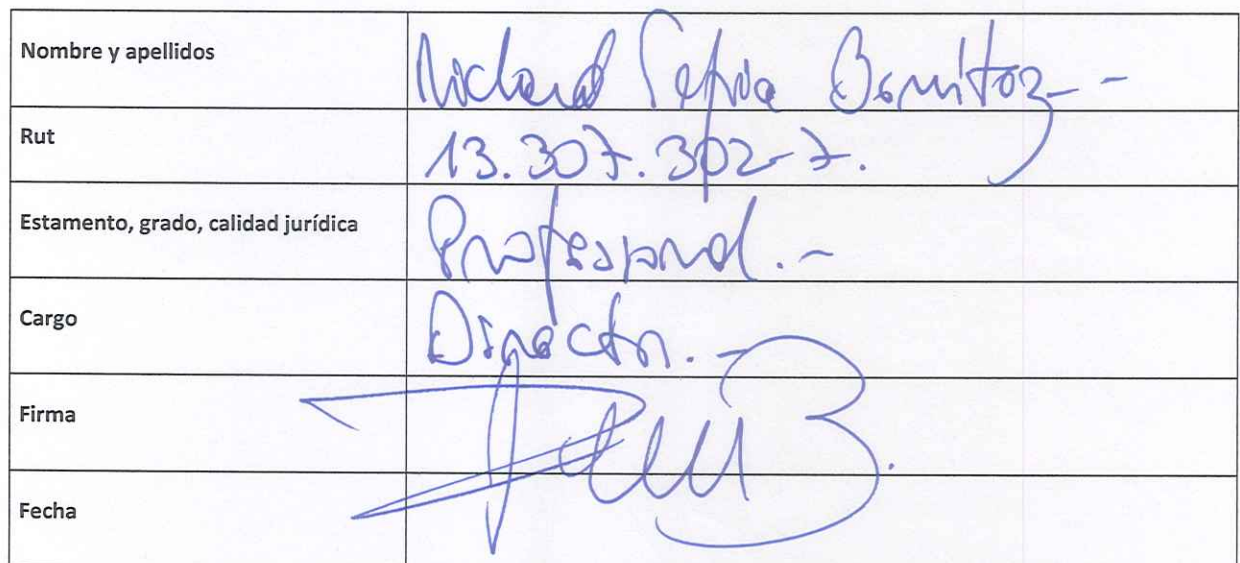 Nombre y apellidos
Benítez.-
Rut 13.307.302-7.
Estamento, grado, calidad jurídica Profesional.-
Cargo Director.-
Firma
Fecha